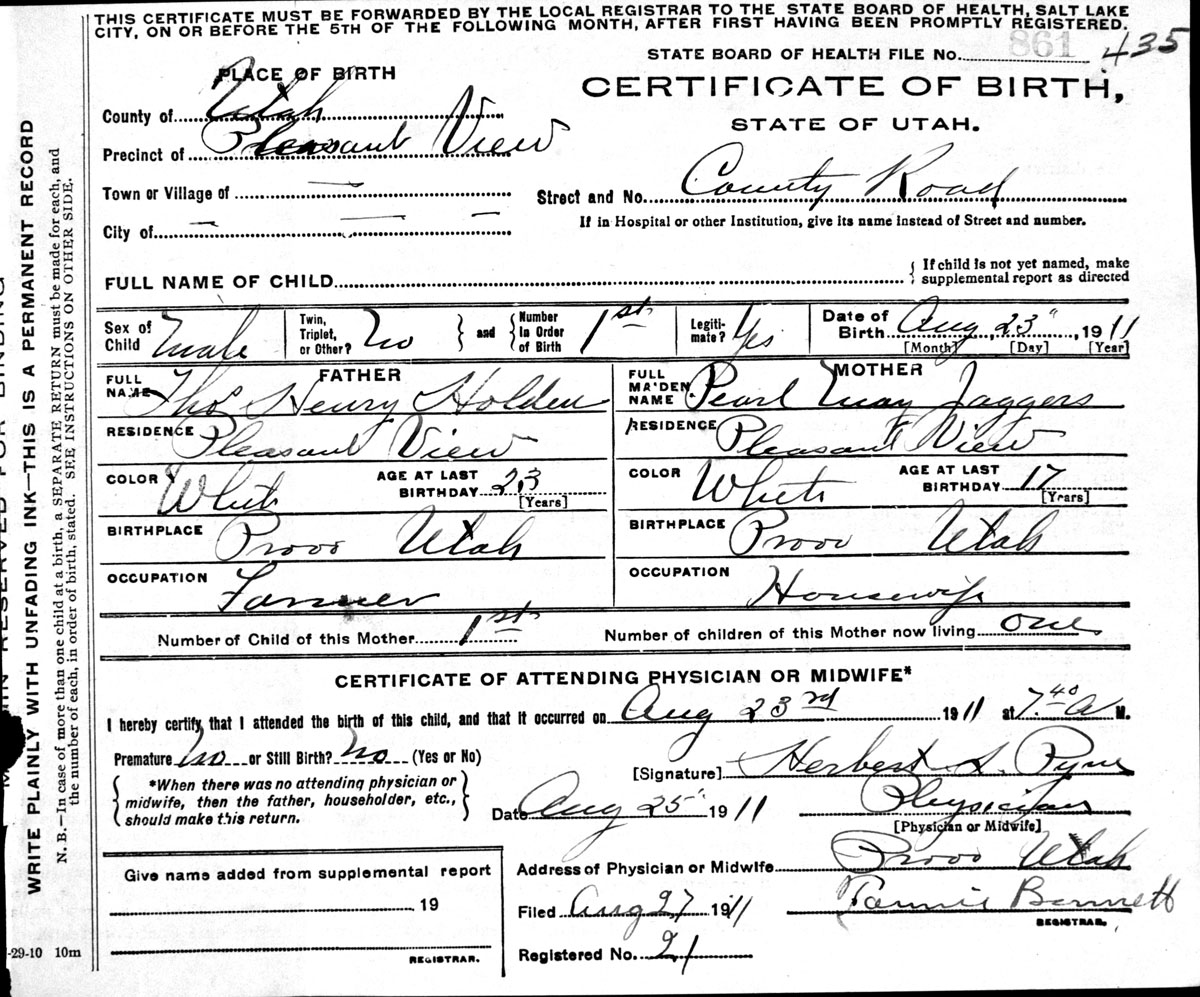 THIS CERTIFICATE MUST BE FORWARDED BY THE LOCAL REGISTRAR TO THE STATE BOARD OF HEALTH, SALT LAKE
CITY, ON OR BEFORE THE 5TH OF THE FOLLOWING MONTH, AFTER FIRST HAVING BEEN PROMPTLY REGISTERED.
STATE BOARD OF HEALTH FILE No. 861 435
PLACE OF BIRTH
CERTIFICATE OF BIRTH,
STATE OF UTAH.
County of Utah
Precinct of Pleasant View
Town or Village of —
Street and No. County Road
City of — — —
If in Hospital or other Institution, give its name instead of Street and number.
FULL NAME OF CHILD
{ If child is not yet named, make
supplemental report as directed
Sex of Child Male
Twin, Triplet, or Other? No } and { Number In Order of Birth 1st
Legiti- mate? Yes
Date of Birth Aug 23", 1911
[Month] [Day] [Year]
FATHER
FULL NAME Thos Henry Holden
RESIDENCE Pleasant View
COLOR White AGE AT LAST BIRTHDAY 23 [Years]
BIRTHPLACE Provo Utah
OCCUPATION Farmer
MOTHER
FULL MAIDEN NAME Pearl May Jaggers
RESIDENCE Pleasant View
COLOR White AGE AT LAST BIRTHDAY 17 [Years]
BIRTHPLACE Provo Utah
OCCUPATION Housewife
Number of Child of this Mother 1st Number of children of this Mother now living one
CERTIFICATE OF ATTENDING PHYSICIAN OR MIDWIFE*
I hereby certify that I attended the birth of this child, and that it occurred on Aug 23rd 1911 at 7.40 a M.
Premature No or Still Birth? No (Yes or No)
[Signature] Herbert S. Pyne
*When there was no attending physician or
midwife, then the father, householder, etc.,
should make this return.
Date Aug 25" 1911 Physician
[Physician or Midwife]
Address of Physician or Midwife Provo Utah
Give name added from supplemental report
19
REGISTRAR.
Filed Aug 27 1911 Bennett
REGISTRAR.
Registered No. 21
WRITE PLAINLY WITH UNFADING INK—THIS IS A PERMANENT RECORD
N. B.—In case of more than one child at a birth, a SEPARATE RETURN must be made for each, and
the number of each, in order of birth, stated. SEE INSTRUCTIONS ON OTHER SIDE.
-29-10 10m